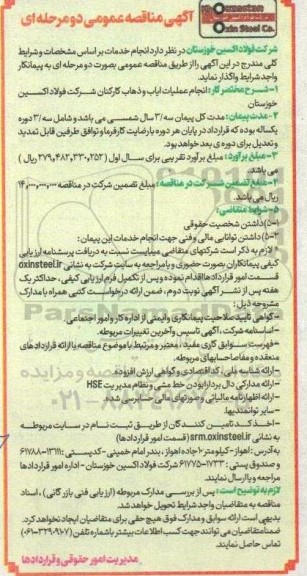 Khouzestan
Oxin Steel Co.
آگهی مناقصه عمومی دو مرحله ای
شرکت فولاد اکسین خوزستان در نظر دارد انجام خدمات بر اساس مشخصات و شرایط
کلی مندرج در این آگهی را از طریق مناقصه عمومی بصورت دو مرحله ای به پیمانکار
واجد شرایط واگذار نماید.
۱- شرح مختصر کار: انجام عملیات ایاب و ذهاب کارکنان شرکت فولاد اکسین
خوزستان
۲- مدت پیمان: مدت کل پیمان ۳/سال شمسی می باشد و شامل سه/۳ دوره
یکساله بوده که قرارداد در پایان هر دوره با رضایت کارفرما و توافق طرفین قابل تمدید
و تعدیل برای دوره ی بعد خواهد بود.
۳- مبلغ برآورد: مبلغ برآورد تقریبی برای سال اول (۲۷۹,۴۸۲,۳۳۰,۲۵۲ ریال)
می باشد.
۴- مبلغ تضمین شرکت در مناقصه: مبلغ تضمین شرکت در مناقصه ۱۴,۰۰۰,۰۰۰,۰۰۰
ریال می باشد.
۵- شرایط متقاضی:
۵-۱) داشتن شخصیت حقوقی
۵-۲) داشتن توانایی مالی و فنی جهت انجام خدمات این پیمان:
* لازم به ذکر است شرکتهای متقاضی میبایست نسبت به دریافت پرسشنامه ارزیابی
کیفی پیمانکاران بصورت حضوری یا مراجعه به سایت شرکت به نشانی oxinsteel.ir
قسمت امور قراردادها اقدام نموده و پس از تکمیل فرم ارزیابی کیفی، حداکثر یک
هفته پس از نشر آگهی نوبت دوم، ضمن ارائه درخواست کتبی همراه با مدارک
مشروحه ذیل:
- گواهی تایید صلاحیت پیمانکاری و ایمنی از اداره کار و امور اجتماعی.
- اساسنامه شرکت، آگهی تاسیس و آخرین تغییرات مربوطه.
- فهرست سوابق کاری مفید، معتبر و مرتبط با موضوع مناقصه با ارائه قراردادهای
منعقده و مفاصاحسابهای مربوطه.
- ارائه شناسه ملی، کد اقتصادی و گواهی ارزش افزوده.
- ارائه مدارکی دال بر دارا بودن خط مشی و نظام مدیریت HSE
- ارائه اظهارنامه مالیاتی و صورتهای مالی حسابرسی شده.
- سایر توانمندیها.
- اخذ کد تامین کنندگان از طریق ثبت نام در سایت مربوطه
به نشانی srm.oxinsteel.ir (قسمت امور قراردادها)
به آدرس: اهواز - کیلومتر ۱۰ جاده اهواز، بندر امام خمینی - کدپستی: ۱۳۱۱۱-۶۱۷۸۸
و صندوق پستی: ۱۷۳۳-۶۱۷۷۵ شرکت فولاد اکسین خوزستان - اداره امور قراردادها
مراجعه و یا ارسال نمایند.
لازم به توضیح است: پس از بررسی مدارک مربوطه (ارزیابی فنی بازرگانی)، اسناد
مناقصه به متقاضیان واجد شرایط تحویل خواهد شد.
بدیهی است ارائه سوابق و مدارک فوق هیچ حقی برای متقاضیان ایجاد نخواهد کرد.
ضمنا متقاضیان می توانند جهت کسب اطلاعات بیشتر با شماره تلفن (۷-۳۲۹۰۹-۰۶۱)
تماس حاصل نمایند.
مدیریت امور حقوقی و قراردادها